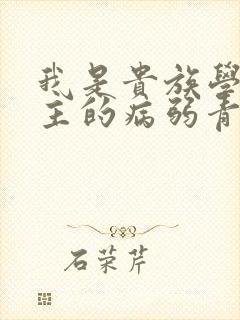 我是貴族學
主的病弱青
石荣芹